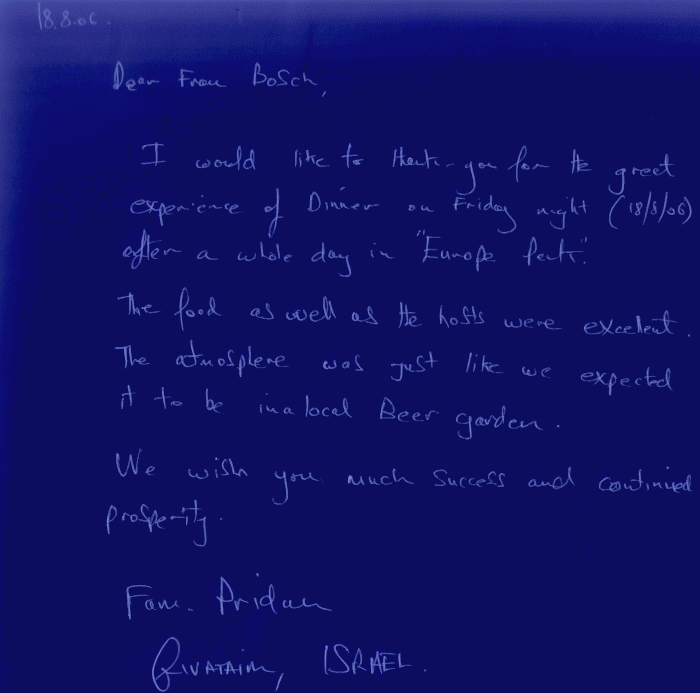 18.8.06.
Dear Frau Bosch,
I would like to thank you for the great
experience of Dinner on Friday night (18/8/06)
after a whole day in "Europe Park".
The food as well as the hosts were excellent.
The atmosphere was just like we expected
it to be in a local Beer garden.
We wish you much success and continued
prosperity.
Fam. Pridan
GIVATAIM, ISRAEL.